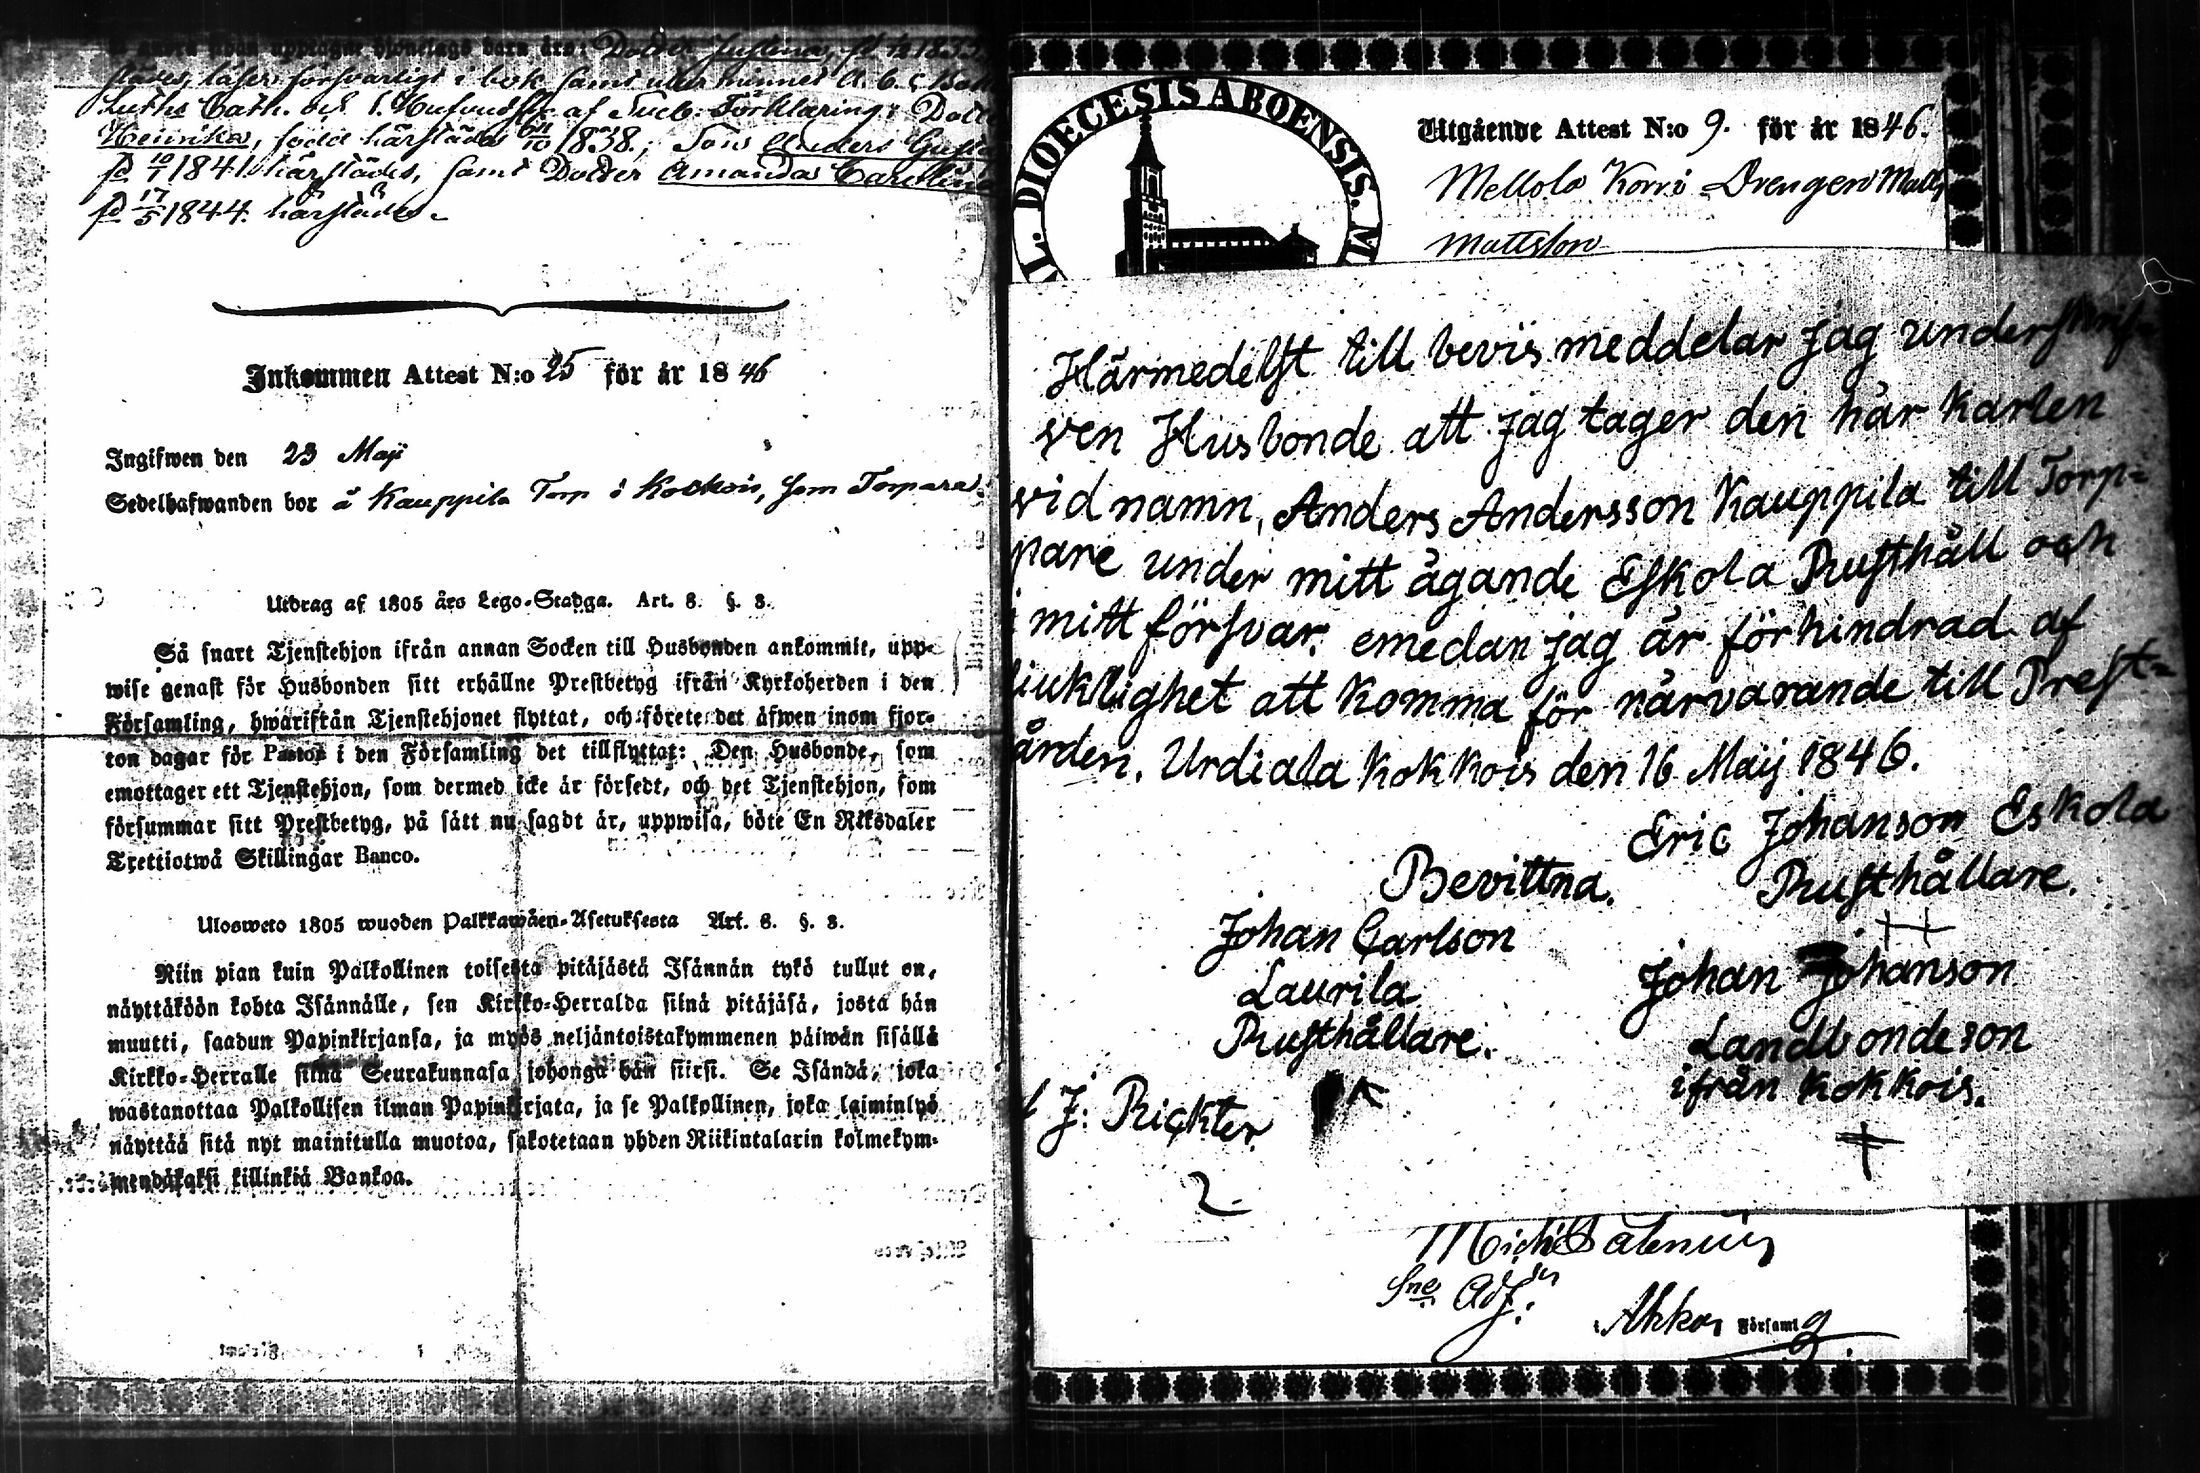 Dotter Justina, fd 1835
städes, läser försvarligt i bok samt utur minnet A. B. C Bok
Luthi Cath. och Sveb. Förklaring; Dotter
Henrika, född härstädes 1838; Son Anders Gusta
fd 1841 härstädes, samt Dotter Amanda Carolina
fd 17/5 1844 härstädes.
Inkommen Attest N:o 25 för år 1846
Ingifwen den 23 Maji
Sedelhafwanden bor å Kauppila Torp i Kockois, som Torpare.
Utdrag af 1805 års Lego-Stadga. Art. 8. §. 3.
Så snart Tjenstehjon ifrån annan Socken till Husbonden ankommit, upp-
wise genast för Husbonden sitt erhållne Prestbetyg ifrån Kyrkoherden i den
Församling, hwarifrån Tjenstehjonet flyttat, och förete det äfwen inom fjor-
ton dagar för Pastor i den Församling det tillflyttat: Den Husbonde, som
emottager ett Tjenstehjon, som dermed icke är försedt, och det Tjenstehjon, som
försummar sitt Prestbetyg, på sätt nu sagdt är, uppwisa, böte En Riksdaler
Trettiotwå Skillingar Banco.
Ulosweto 1805 wuoden Palkkawäen-Asetuksesta Art. 8. §. 3.
Niin pian kuin Palkollinen toisesta pitäjästä Isännän tykö tullut on,
näyttäköön kohta Isännälle, sen Kirkko-Herralda siinä pitäjäsä, josta hän
muutti, saadun Papinkirjansa, ja myös neljäntoistakymmenen päiwän sisällä
Kirkko-Herralle siinä Seurakunnasa johonga hän siirsi. Se Isändä, joka
wastanottaa Palkollisen ilman Papinkirjata, ja se Palkollinen, joka laiminlyö
näyttää sitä nyt mainitulla muotoa, sakotetaan yhden Riikintalarin kolmekym-
mendäkaksi killinkiä Bankoa.
L. DIOECESIS ABOENSIS. M
Utgående Attest N:o 9. för år 1846.
Mellola Korri Drengen Matts
Mattsson
Härmedelst till bevis meddelar jag underskrif-
ven Husbonde att jag tager den här Karlen
vid namn, Anders Andersson Kauppila till Torp-
pare under mitt ägande Eskola Rusthåll och
i mitt försvar. emedan jag är förhindrad af
siuklighet att Komma för närvarande till Prest-
gården. Urdiala Kokkois den 16 Maij 1846.
Eric Johanson Eskola
Rusthållare.
Bevittna.
Johan Carlson
Laurila
Rusthållare.
Johan Johanson
Landbondeson
ifrån Kokkois.
J: Rickter
2
Mich
Adj:
i Ahkas Församl g